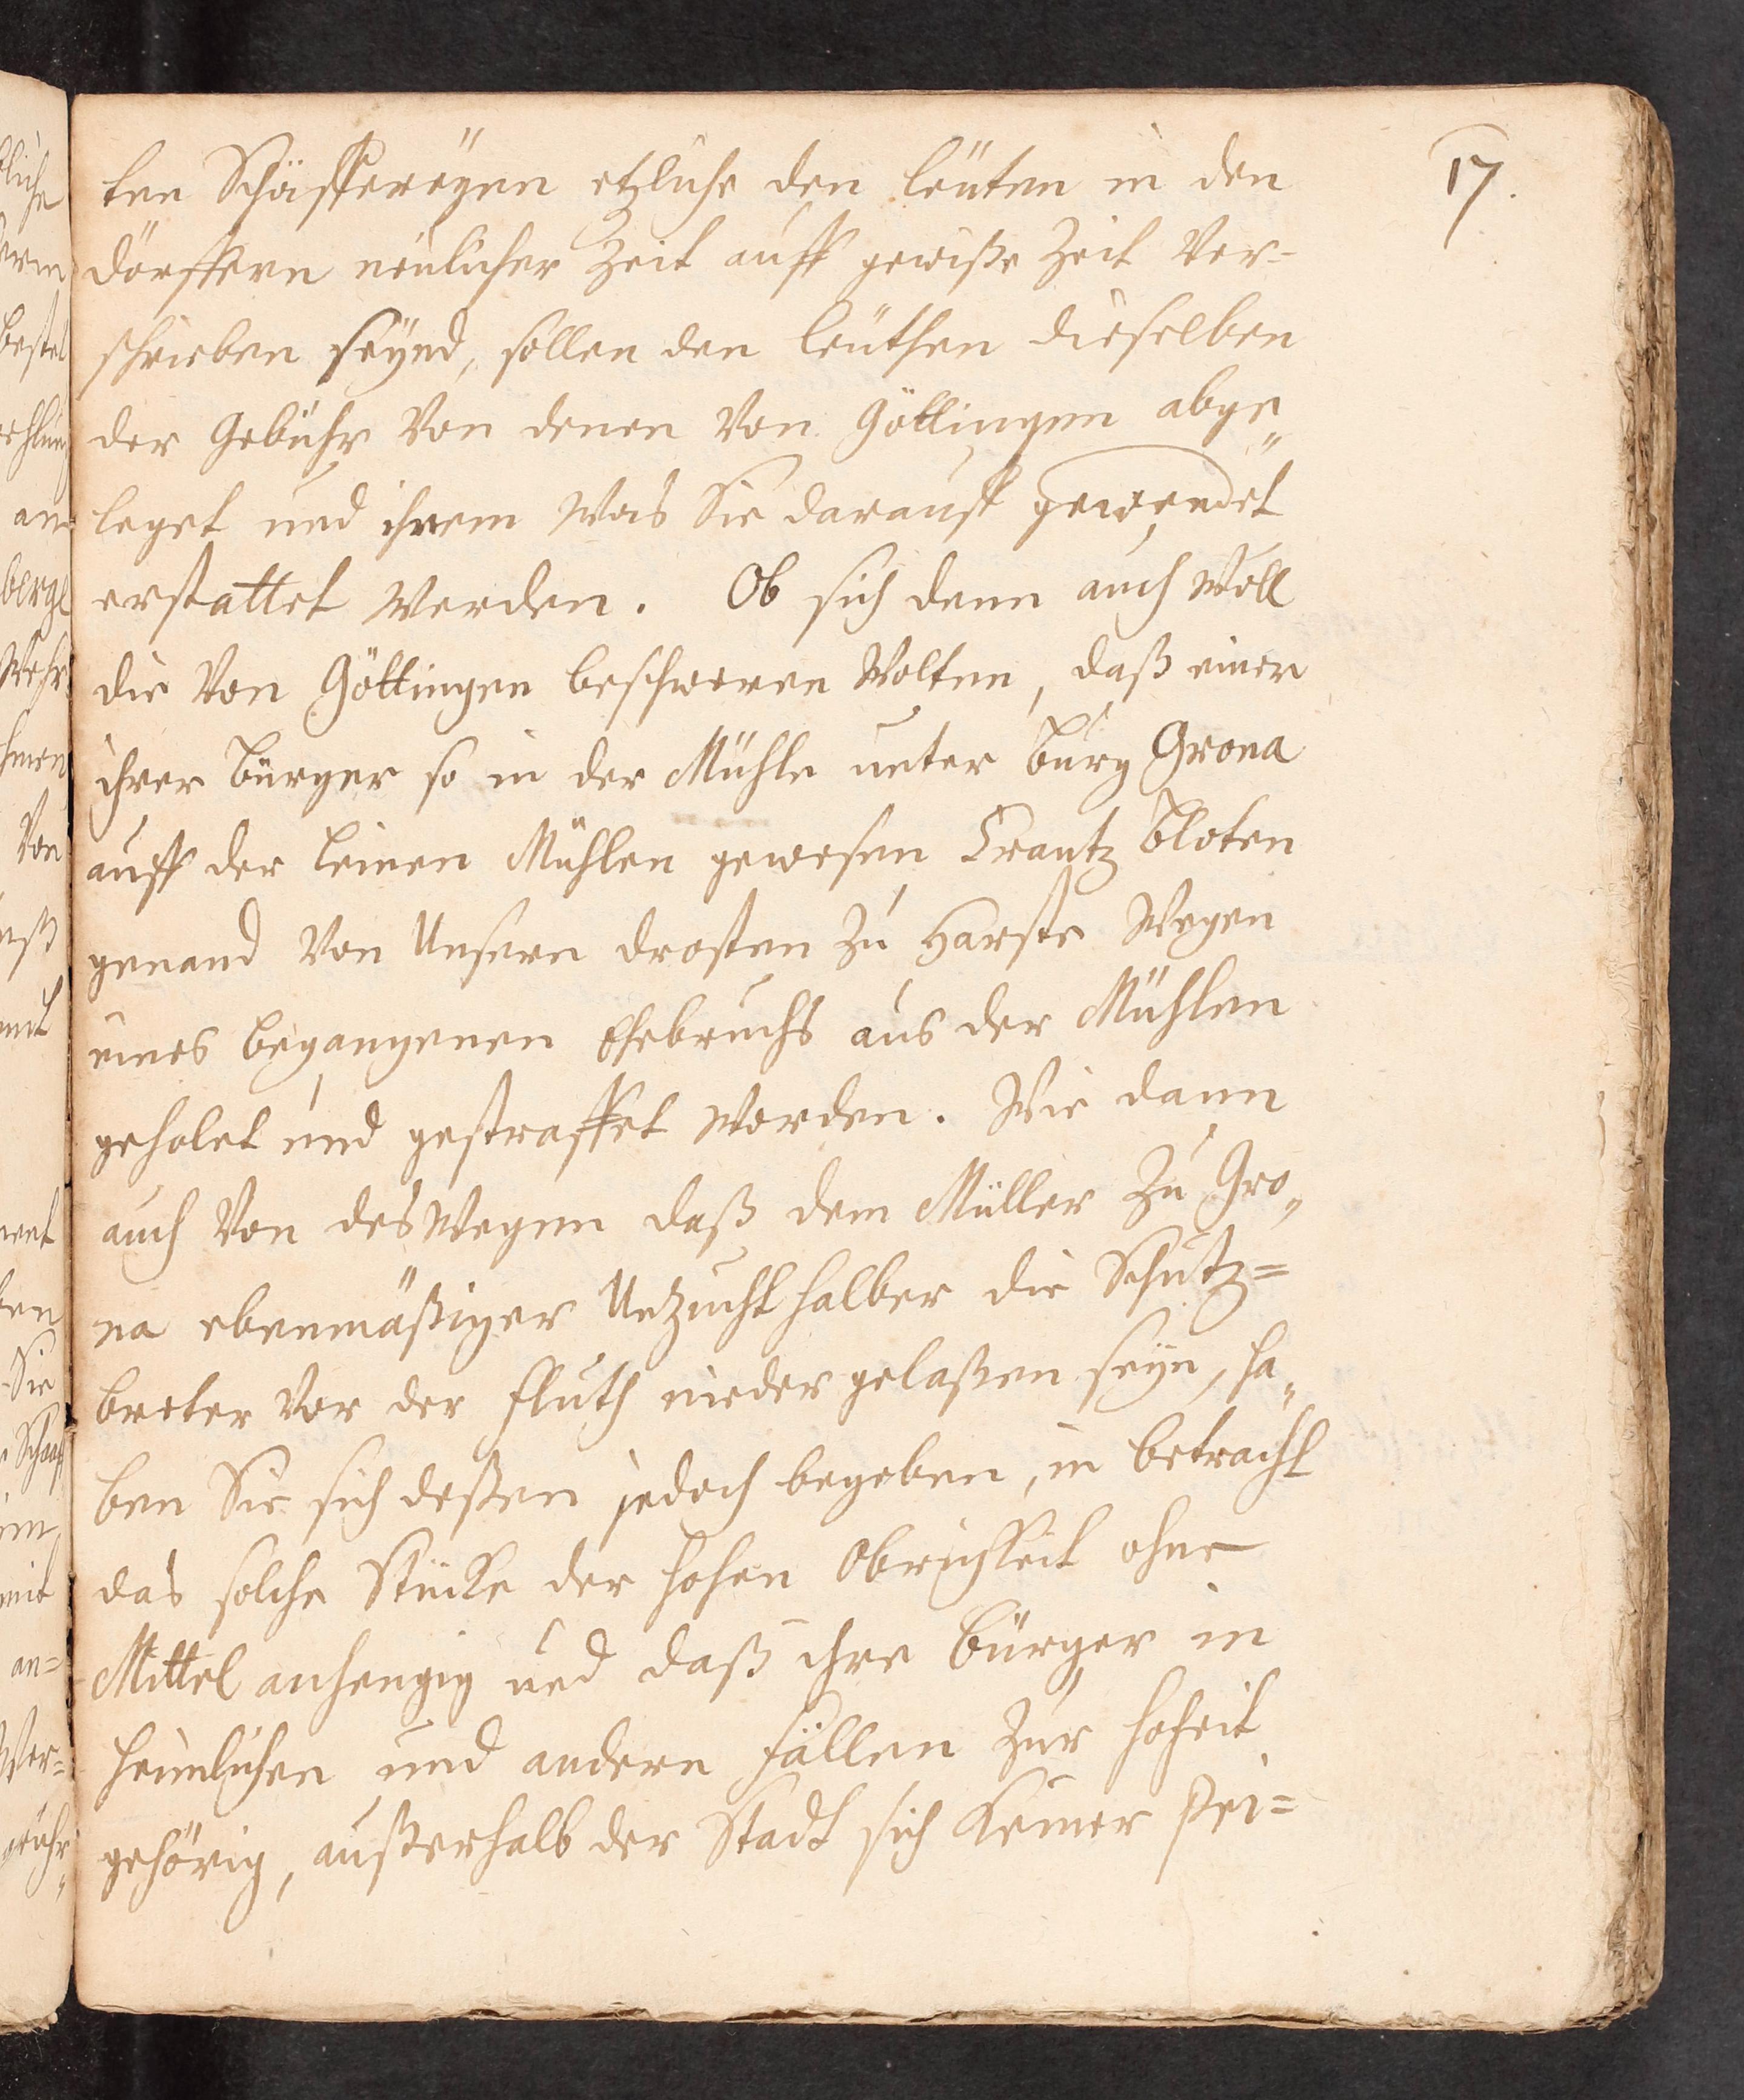 17.
ten Schäffereyen etzliche den leuten in den
dörffern neulicher Zeit auff gewiße Zeit Ver-
schrieben seynd, sollen den leuthen dieselben
der Gebühr Von denen Von Göttingen abge„
leget und ihnen Was Sie darauff gewendet
erstattet Werden. Ob sich denn auch Woll
die Von Göttingen beschweren Wolten, daß einer
ihrer bürger so in der Mühle unter burg Grona
auff der leinen Mühlen gewesen Crantz bloten
genand Von Unsern drosten zu Harste Wegen
eines begangenen Ehebruchs aus der Mühlen
geholet und gestraffet Worden. Wie dann
auch Von desWegen daß dem Müller Zu Gro„
na ebenmäßiger Unzucht halber die Schutz=
breter Vor der fluth nieder gelaßen seyn, ha„
ben Sie sich deßen jedoch begeben, in betracht
das solche Stücke der hohen Obrigkeit ohne
Mittel anhengig und daß ihre bürger in
heimlichen und andern fällen zur hoheit
gehörig, außerhalb der Stadt sich Keiner frei=